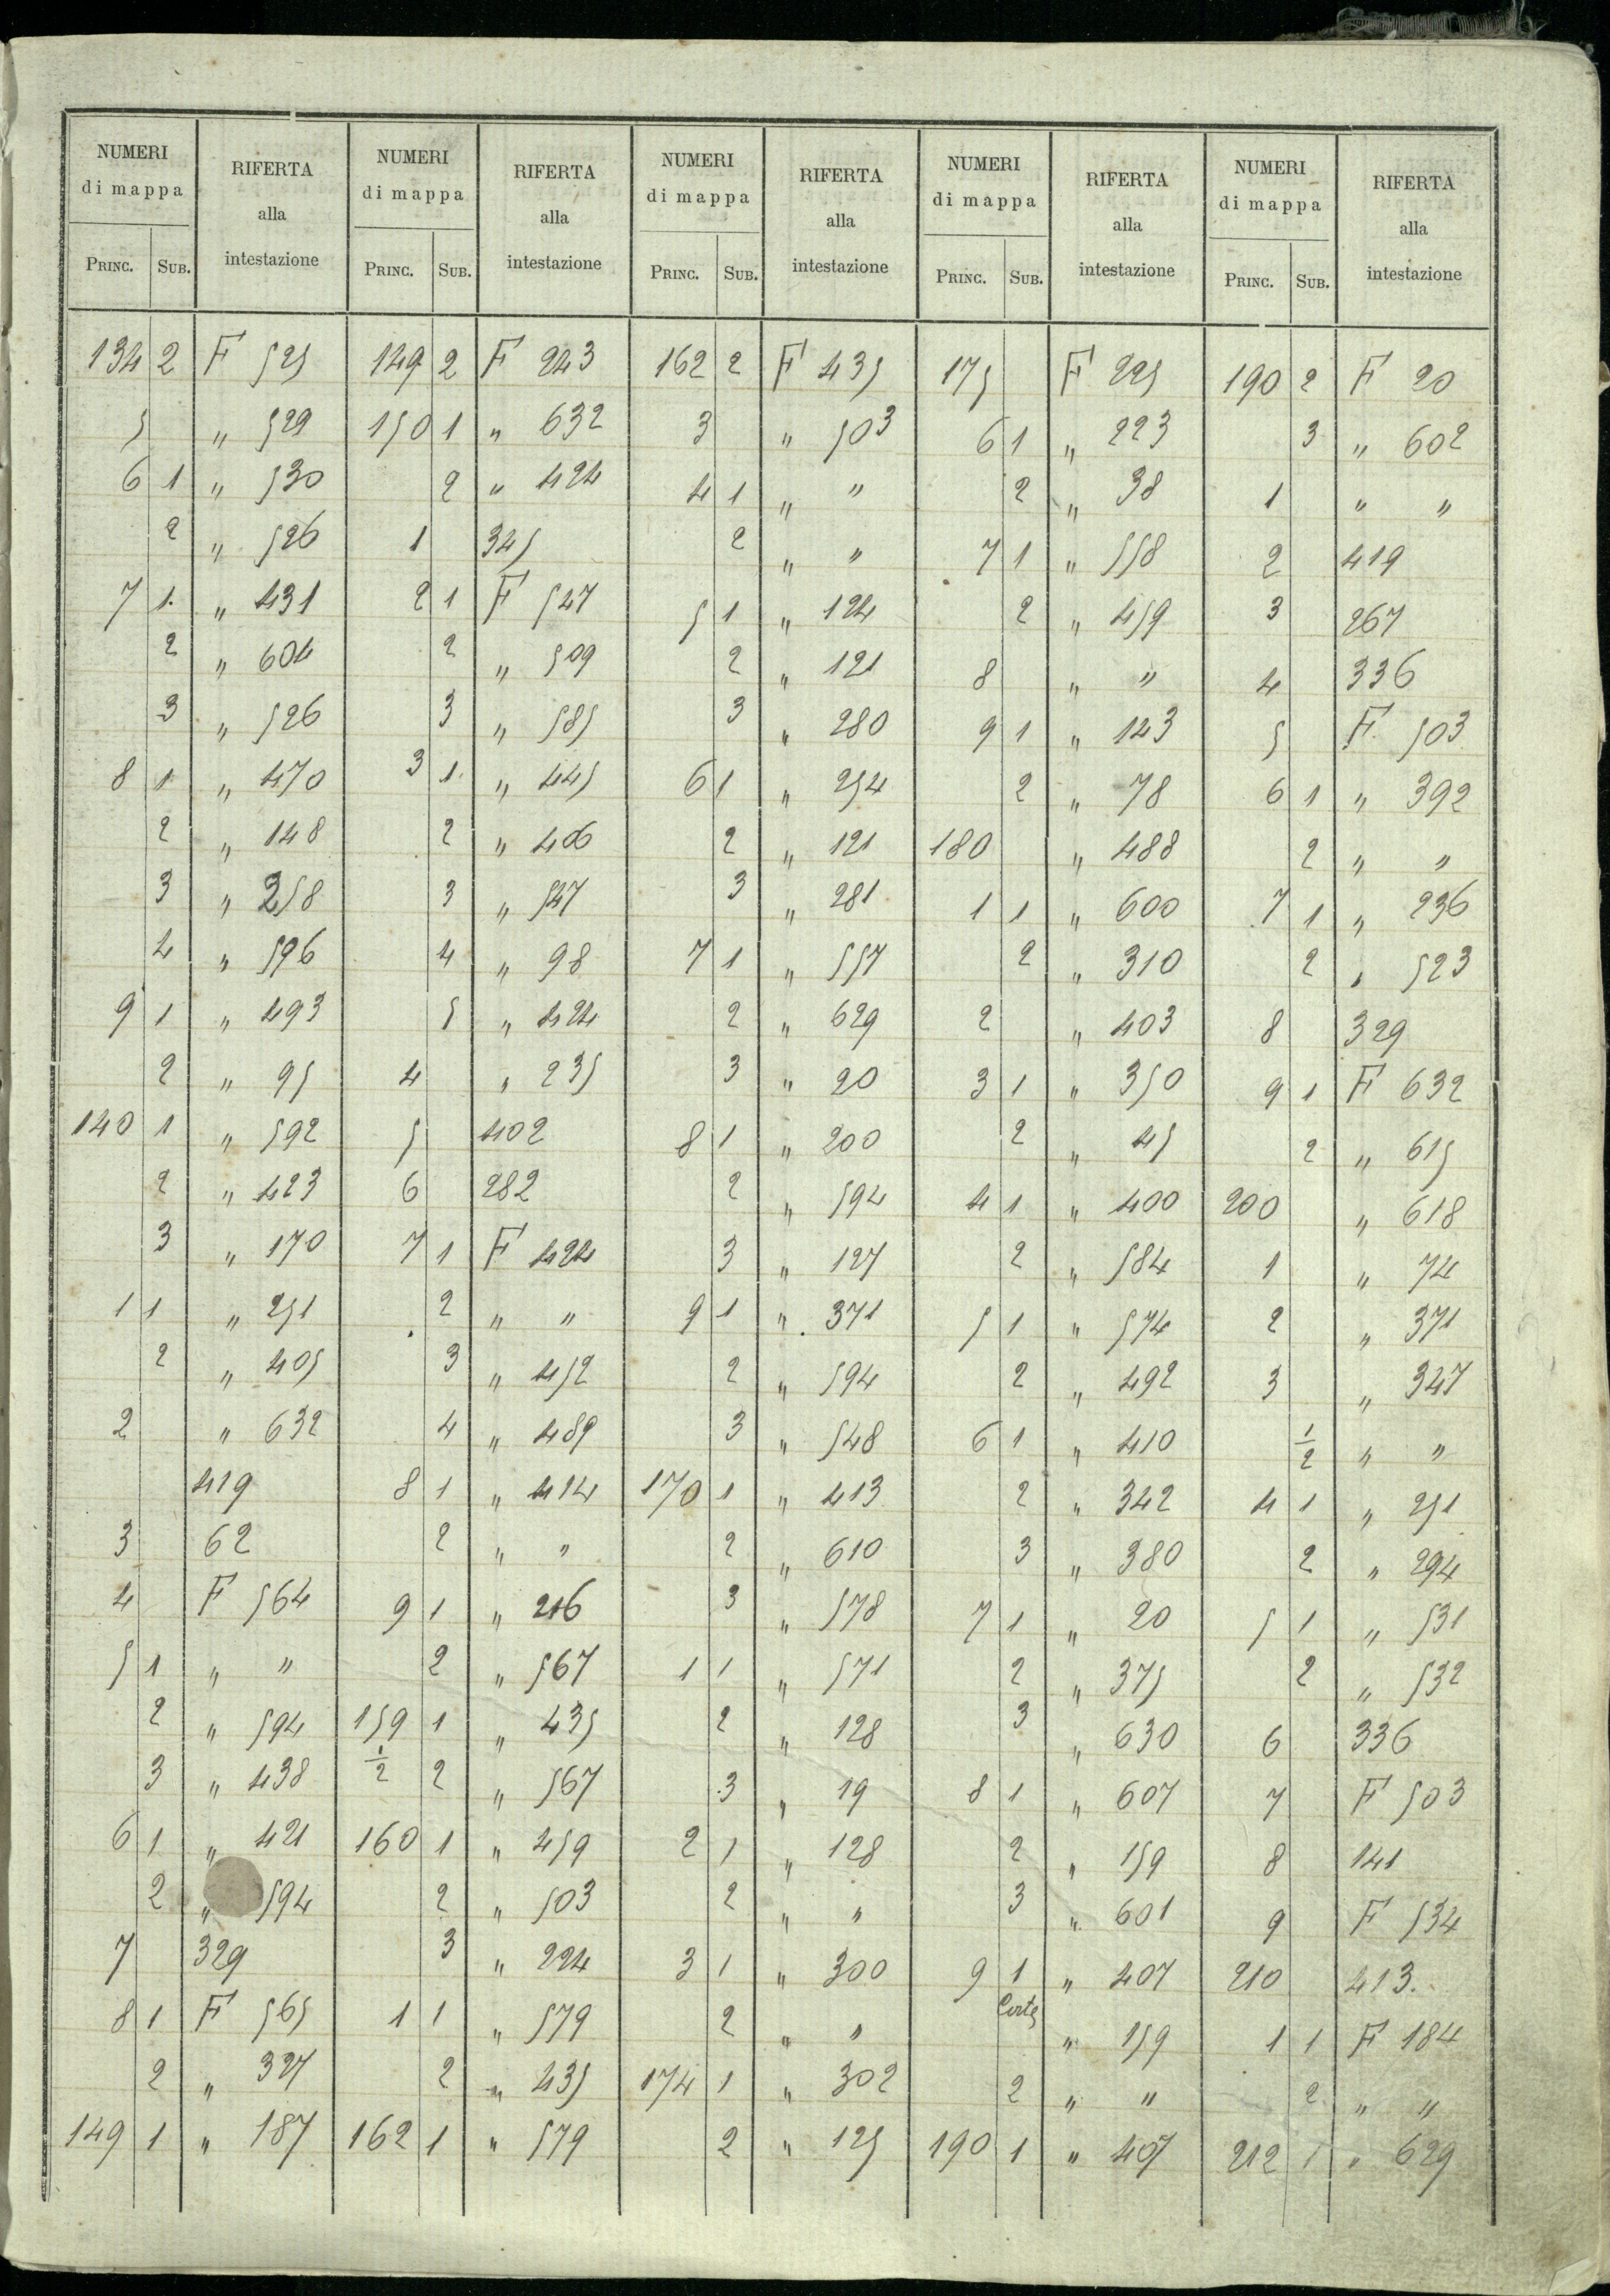 NUMERI di mappa RIFERTA alla intestazione NUMERI di mappa RIFERTA alla intestazione NUMERI di mappa RIFERTA alla intestazione NUMERI di mappa RIFERTA alla intestazione NUMERI di mappa RIFERTA alla intestazione
PRINC. SUB. PRINC. SUB. PRINC. SUB. PRINC. SUB. PRINC. SUB.
134 2 F 525 149 2 F 243 162 2 F 435 175 F 225 190 2 F 20
5 " 529 150 1 " 632 3 " 503 6 1 " 223 3 " 602
6 1 " 530 2 " 424 4 1 " " 2 " 38 1 " "
2 " 526 1 345 2 " " 7 1 " 558 2 419
7 1 " 431 2 1 F 547 5 1 " 124 2 " 459 3 267
2 " 604 2 " 509 2 " 121 8 " " 4 336
3 " 526 3 " 585 3 " 280 9 1 " 123 5 F 503
8 1 " 470 3 1 " 445 6 1 " 254 2 " 78 6 1 " 392
2 " 148 2 " 406 2 " 121 180 " 488 2 " "
3 " 258 3 " 547 3 " 281 1 1 " 600 7 1 " 236
4 " 596 4 " 98 7 1 " 557 2 " 310 2 " 523
9 1 " 493 5 " 424 2 " 629 2 " 403 8 329
2 " 95 4 " 235 3 " 20 3 1 " 350 9 1 F 632
140 1 " 592 5 402 8 1 " 200 2 " 45 2 " 615
2 " 423 6 282 2 " 594 4 1 " 400 200 " 618
3 " 170 7 1 F 424 3 " 127 2 " 584 1 " 74
1 1 " 251 2 " " 9 1 " 371 5 1 " 574 2 " 371
2 " 405 3 " 452 2 " 594 2 " 492 3 " 347
2 " 632 4 " 489 3 " 548 6 1 " 410 1/2 " "
419 8 1 " 414 170 1 " 413 2 " 342 4 1 " 251
3 62 2 " " 2 " 610 3 " 380 2 " 294
4 F 564 9 1 " 216 3 " 578 7 1 " 20 5 1 " 531
5 1 " " 2 " 567 1 1 " 571 2 " 375 2 " 532
2 " 594 159 1 " 435 2 " 128 3 " 630 6 336
3 " 438 1/2 2 " 567 3 " 19 8 1 " 607 7 F 503
6 1 " 421 160 1 " 459 2 1 " 128 2 " 159 8 141
2 " 594 2 " 503 2 " " 3 " 601 9 F 534
7 329 3 " 224 3 1 " 300 9 1 " 407 210 413.
8 1 F 565 1 1 " 579 2 " " Corte " 159 1 1 F 184
2 " 327 2 " 435 174 1 " 302 2 " " 2 " "
149 1 " 187 162 1 " 579 2 " 125 190 1 " 407 212 1 " 629